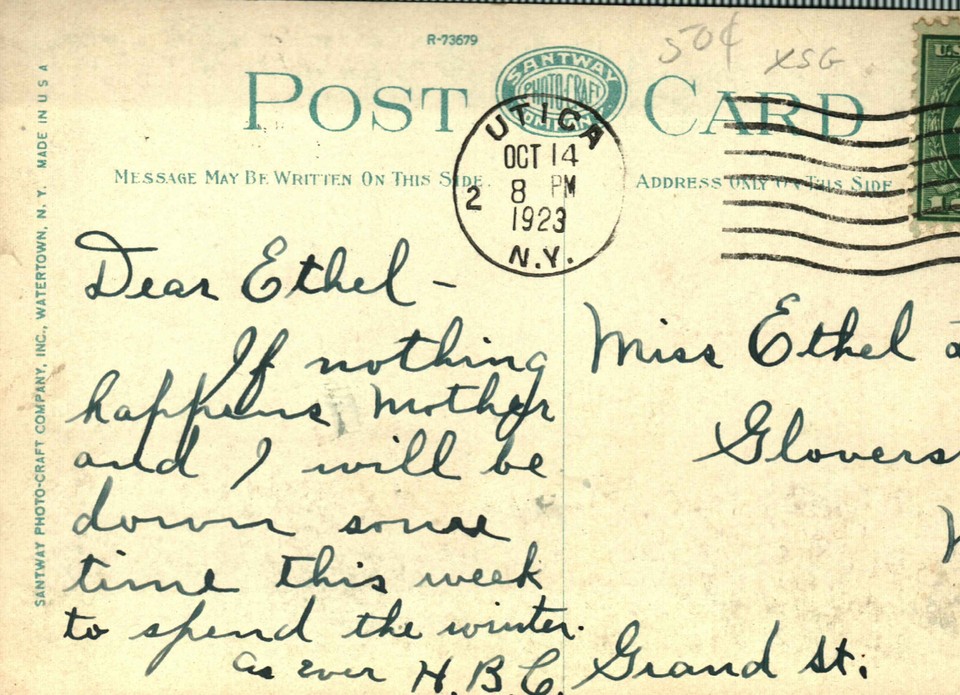 R-73679
50¢ XSG
POST CARD
SANTWAY
PHOTO-CRAFT
COMPANY
UTICA
OCT 14
2 8 PM
1923
N.Y.
U.S.
MESSAGE MAY BE WRITTEN ON THIS SIDE
ADDRESS ONLY ON THIS SIDE
SANTWAY PHOTO-CRAFT COMPANY, INC., WATERTOWN, N. Y. MADE IN U S A
Dear Ethel -
If nothing
happens Mother
and I will be
down some
time this week
to spend the winter.
as ever H.B.C.
Miss Ethel
Glovers
Grand St.